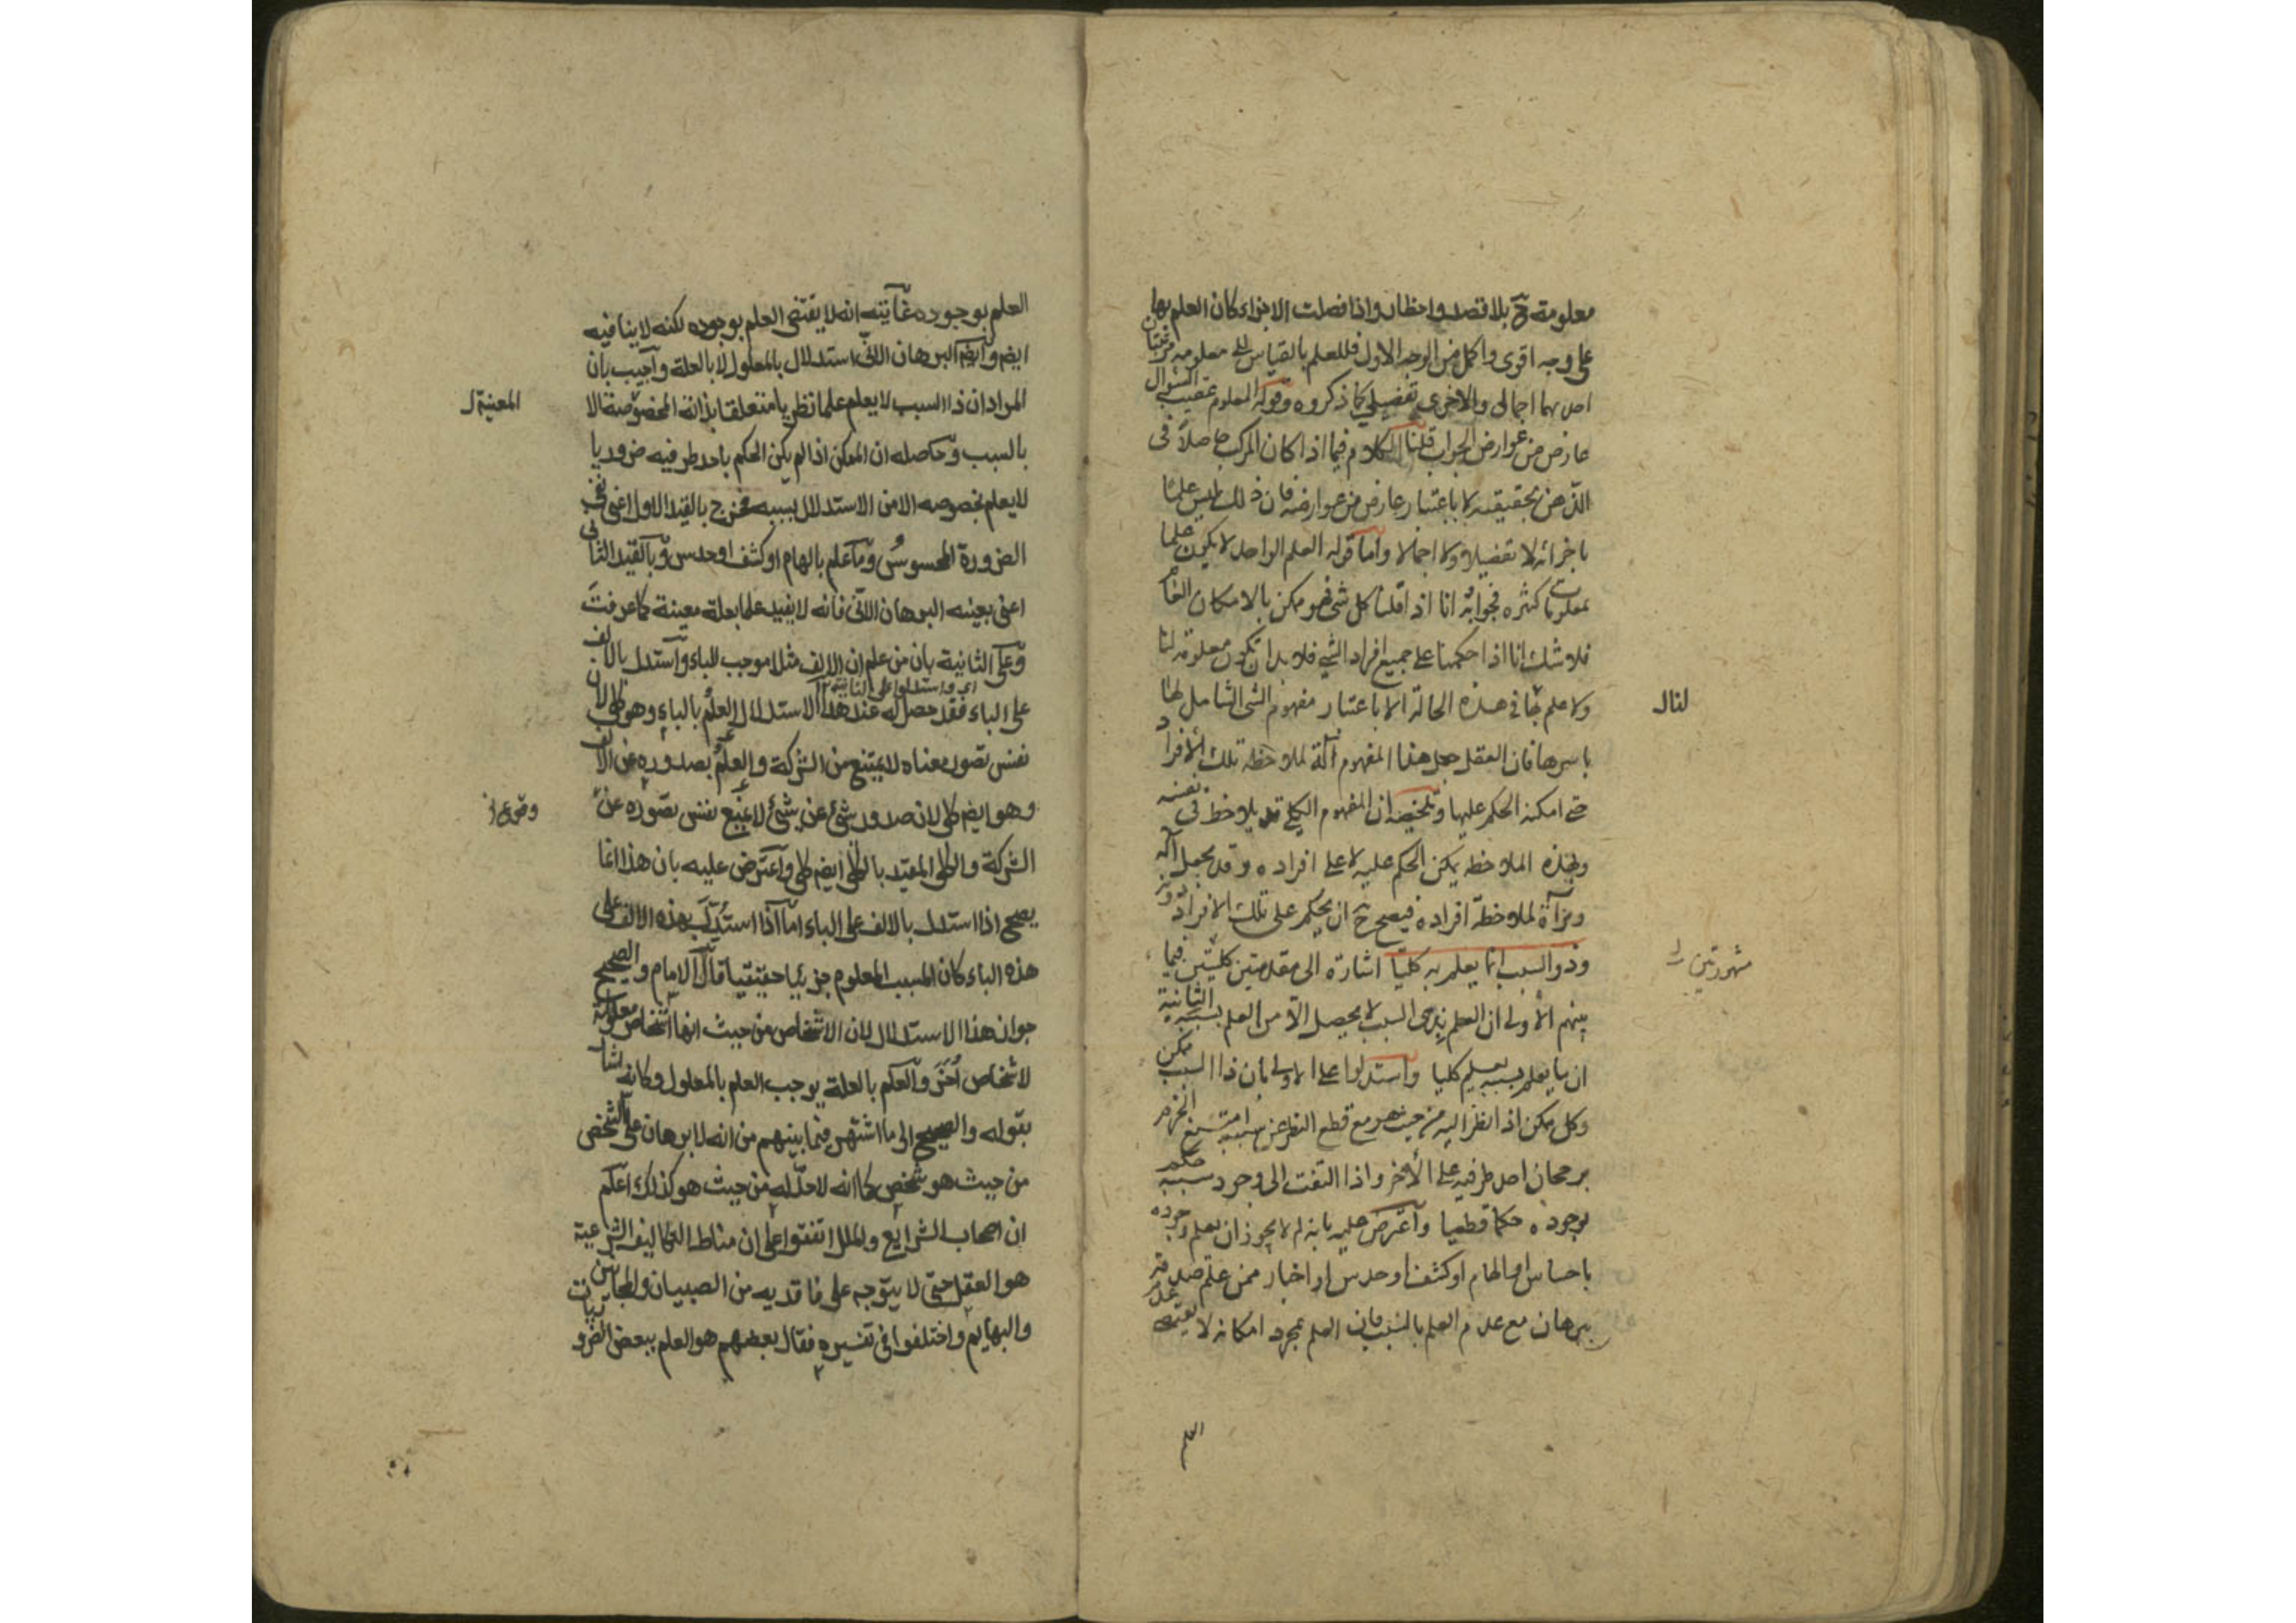 معلومة ح بلا قصد واخطار واذا فصلت الاجزاء كان العلم بها
على وجه اقوى واكمل من الوجه الاول فللعلم بالقياس الى معلومه مرتبتان
احديهما اجمالى والاخرى تفصيلى كما ذكروه وقوله المعلوم عقيب السؤال
عارض من عوارض الجواب قلنا الكلام فيما اذا كان المركب حاصلا فى
الذهن بحقيقته لا باعتبار عارض من عوارضه فان ذلك ليس علما
باجزائه لا تفصيلا ولا اجمالا واما قوله العلم الواحد لا يكون علما
بمعلومات كثيره فجوابه انا اذا قلنا كل شئ فهو ممكن بالامكان الخاص
فلا شك انا اذا حكمنا على جميع افراد الشئ فلا بد ان تكون معلومة لنا
ولا علم بها فى هذه الحالة الا باعتبار مفهوم الشئ الشامل لها
لنا ل
باسرها فان العقل جعل هذا المفهوم آلة لملاحظة تلك الافراد
حتى امكنه الحكم عليها وتلخيصه ان المفهوم الكلى قد يلاحظ فى نفسه
وبهذه الملاحظه يمكن الحكم عليه لا على افراده وقد يجعل آلة
ومرآة لملاحظة افراده فيصح ح ان يحكم على تلك الافراد دونه
وذو السبب انما يعلم به كليا اشارة الى مقدمتين كليتين فيما
مشهورتين ل
بينهم الاولى ان العلم بذى السبب لا يحصل الا من العلم بسببه الثانية
ان ما يعلم بسببه يعلم كليا واستدلوا على الاولى بان ذا السبب ممكن
وكل ممكن اذا نظر اليه من حيث هو مع قطع النظر عن سببه امتنع الجزم
برجحان احد طرفيه على الاخر واذا التفت الى وجود سببه حكم
بوجوده حكما قطعيا واعترض عليه بانه لم لا يجوز ان يعلم وجوده
باحساس او الهام او كشف او حدس او اخبار ممن علم صدقه
ببرهان مع عدم العلم بالسبب فان العلم بمجرد امكانه لا يقتضى عدم
العلم
العلم بوجوده غايته انه لا يقتضى العلم بوجوده لكنه لا ينافيه
ايضم وايضم البرهان الانى استدلال بالمعلول لا بالعلة واجيب بان
المراد ان ذا السبب لا يعلم علما نظريا متعلقا بذاته المخصوصة الا
المعينة ل
بالسبب وحاصله ان الممكن اذا لم يكن الحكم باحد طرفيه ضروريا
لا يعلم بخصوصه الا من الاستدلال بسببه فخرج بالقيد الاول اعنى نفى
الضرورة المحسوس وما علم بالهام او كشف او حدس وبالقيد الثانى
اعنى بعينه البرهان الانى فانه لا يفيد علما بعلة معينة كما عرفت
وعلى الثانية بان من علم ان الالف مثلا موجب للباء واستدل بالالف
اى واستدلوا على الثانية
على الباء فقد حصل له عند هذا الاستدلال العلم بالباء وهو كلى لان
نفس تصور معناه لا يمتنع من الشركة والعلم بصدوره عن الالف
وهو ايضم كلى لان صدور شئ عن شئ لا يمنع نفس تصوره عن
وقوع
الشركة والكلى المقيد بالكلى ايضم كلى واعترض عليه بان هذا انما
يصح اذا استدل بالالف على الباء اما اذا استدل بهذه الالف على
هذه الباء كان المسبب المعلوم جزئيا حقيقيا قال الامام والصحيح
جواز هذا الاستدلال لان الاشخاص من حيث انها اشخاص معلولة
لاشخاص أخر والعلم بالعلة يوجب العلم بالمعلول وكانه اشار
بقوله والصحيح الى ما اشتهر فيما بينهم من انه لا برهان على الشخص
من حيث هو شخص كما انه لا حد له من حيث هو كذلك اعلم
ان اصحاب الشرايع والملل اتفقوا على ان مناط التكاليف الشرعية
هو العقل حتى لا يتوجه على فاقديه من الصبيان والمجانين
والبهايم واختلفوا فى تفسيره فقال بعضهم هو العلم ببعض الضروريات